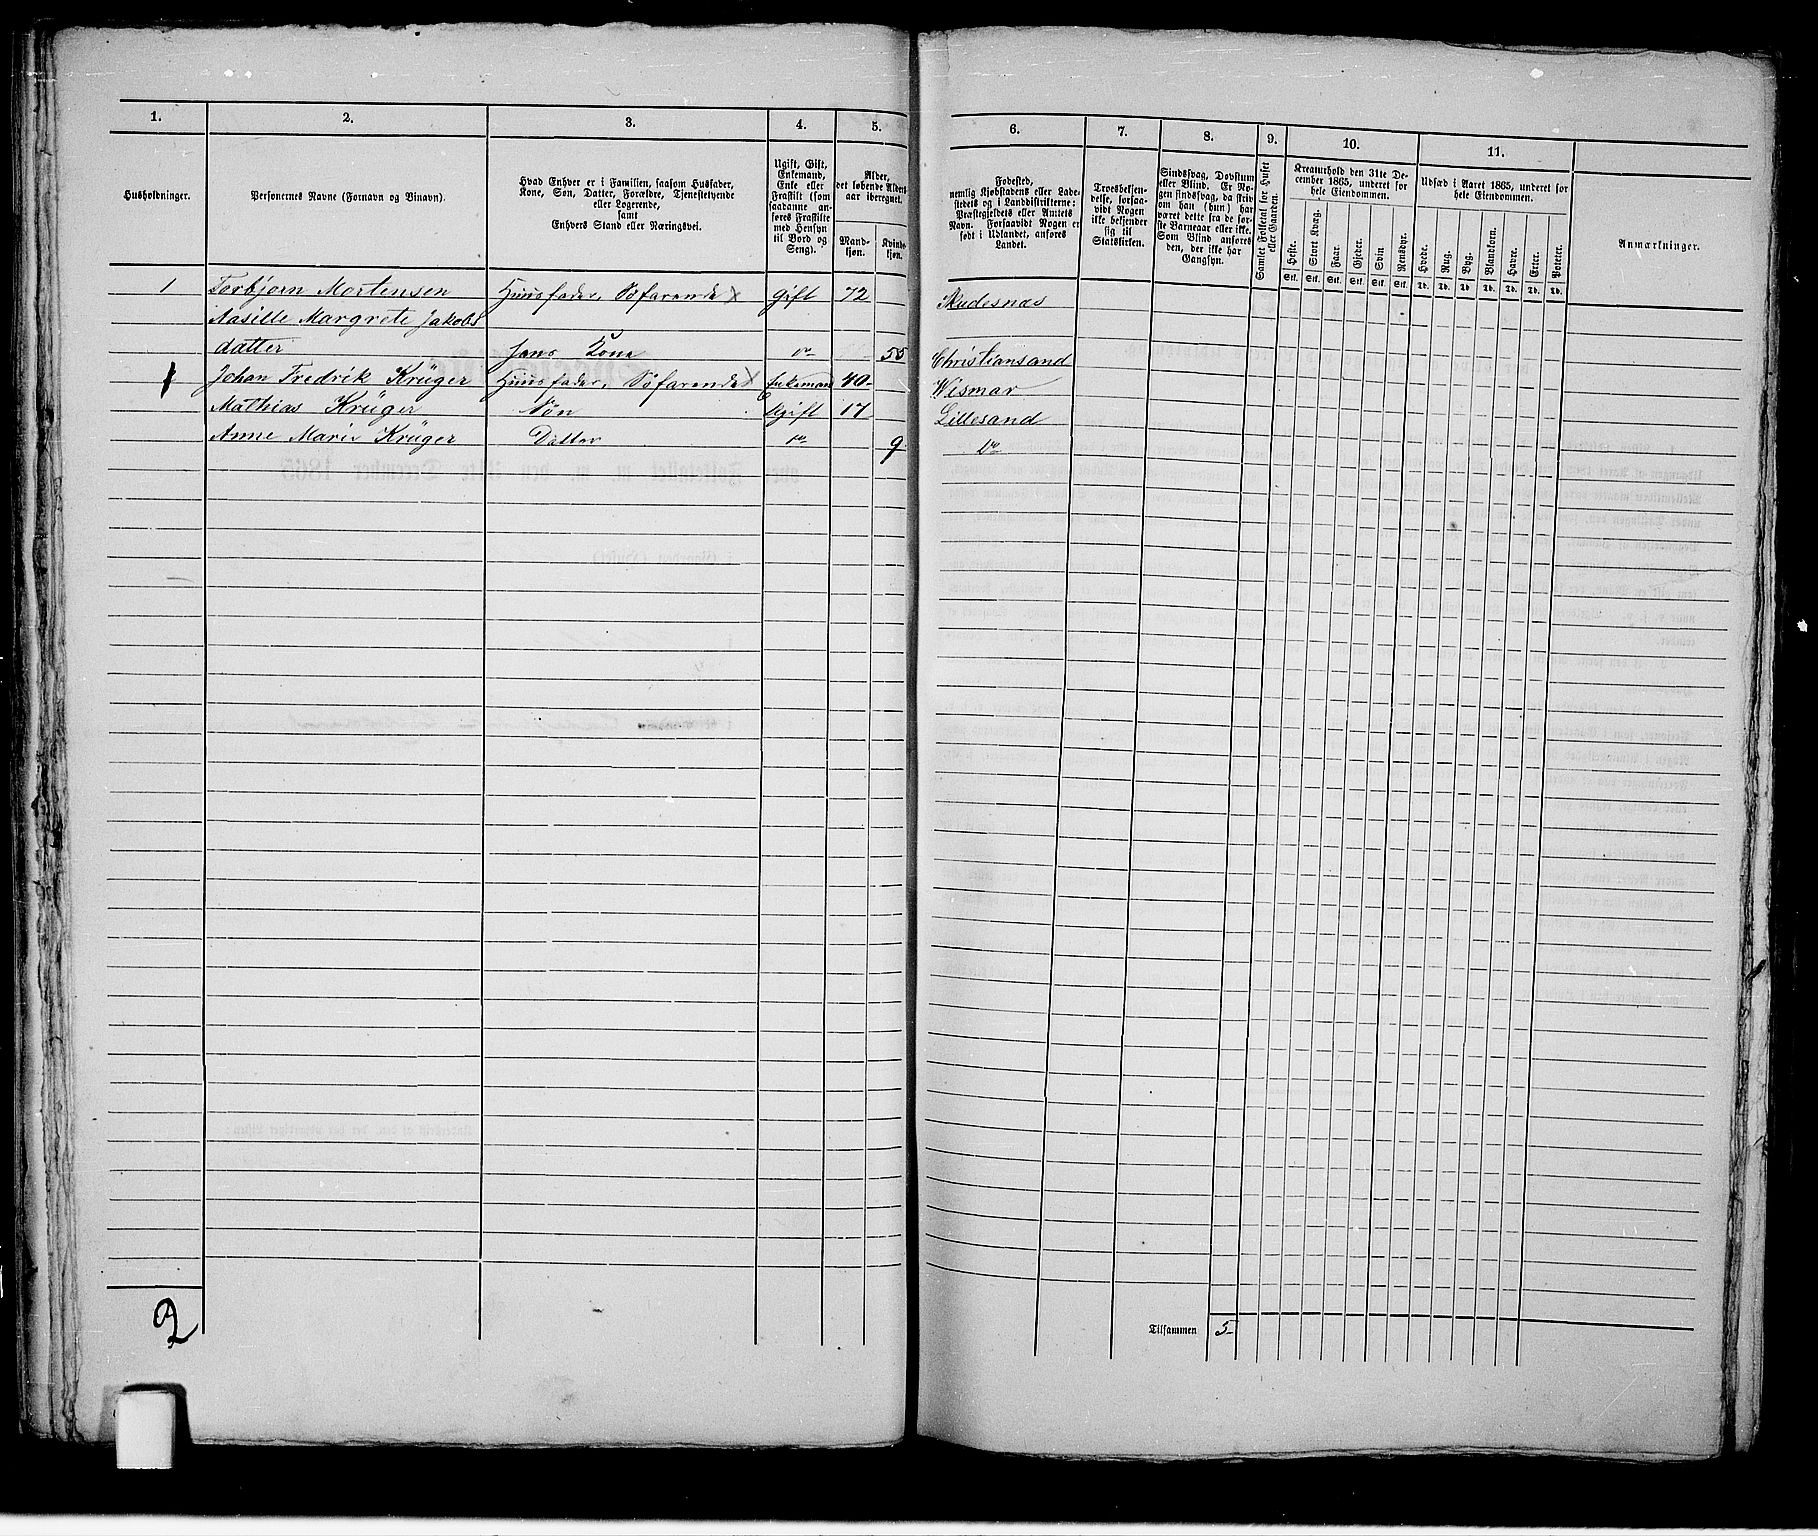 1. 2. 3. 4. 5. 6. 7. 8. 9. 10. 11.
Husholdninger.
Personernes Navne (Fornavn og Binavn).
Hvad Enhver er i Familien, saasom Husfader,
Kone, Søn, Datter, Forældre, Tjenestetyende
eller Logerende,
samt
Enhvers Stand eller Næringsvei.
Ugift, Gift,
Enkemand,
Enke eller
Fraskilt (som
saadanne an-
føres Fraskilte
med Hensyn
til Bord og
Seng).
Alder,
det løbende Alders-
aar iberegnet.
Mand-
kjøn.
Kvinde-
kjøn.
Fødested,
nemlig Kjøbstadens eller Lade-
stedets og i Landdistrikterne:
Præstegjeldets eller Amtets
Navn. Forsaavidt Nogen er
født i Udlandet, anføres
Landet.
Troesbekjen-
delse, forsaa-
vidt Nogen
ikke bekjender
sig til
Statskirken.
Sindssvag, Døvstum
eller Blind. Er No-
gen sindssvag, da skriv
om han (hun) har
været dette fra de før-
ste Barneaar eller ikke.
Som Blind anføres
den, der ikke har
Gangsyn.
Samlet Folketal for Huset
eller Gaarden.
Kreaturhold den 31te De-
cember 1865, underet for
hele Eiendommen.
Heste. Stort Kvæg. Faar. Gjeder. Svin Rensdyr.
Stk. Stk. Stk. Stk. Stk. Stk.
Udsæd i Aaret 1865, underet for
hele Eiendommen.
Hvede. Rug. Byg. Blandkorn. Havre. Erter. Poteter.
Td. Td. Td. Td. Td. Td. Td.
Anmærkninger.
1 Torbjørn Mortensen Huusfader, Søfarende x Gift 72 Skudesnæs
Aasille Margrete Jakobs
datter Hans Kone do 55 Christiansand
1 Johan Fredrik Krüger Huusfader, Søfarende x Enkeman 40 Wismar
Mathias Krüger Søn Ugift 17 Lillesand
Anne Marie Krüger Datter do 9 do
2
Tilsammen 5